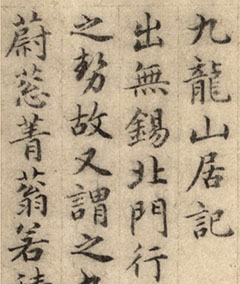 九龍山居記
出無錫北門行
之勢故又謂之九
蔚葱菁蓊若